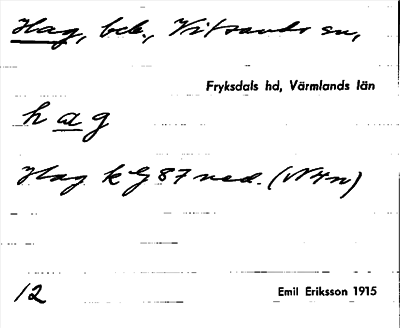 Hag, beb., Vitsands sn,
Fryksdals hd, Värmlands län
hag
Hag kG 87 ned. (NHn)
12
Emil Eriksson 1915